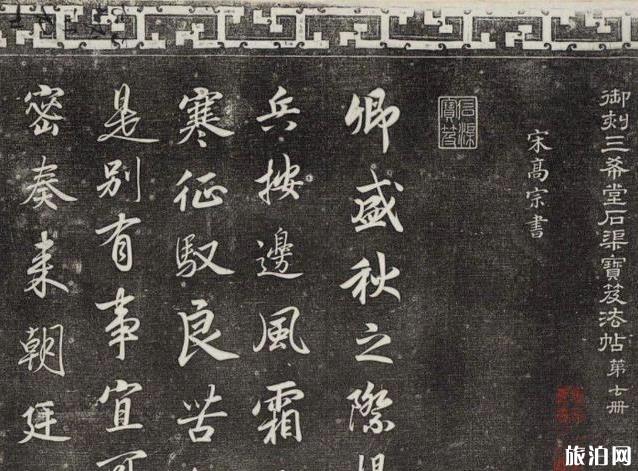 御刻三希堂石渠寶笈法帖 第七册
宋高宗書
石渠寶笈
卿盛秋之際
兵按邊風霜
寒征馭良苦
是别有事宜可
密奏来朝廷
旅泊网